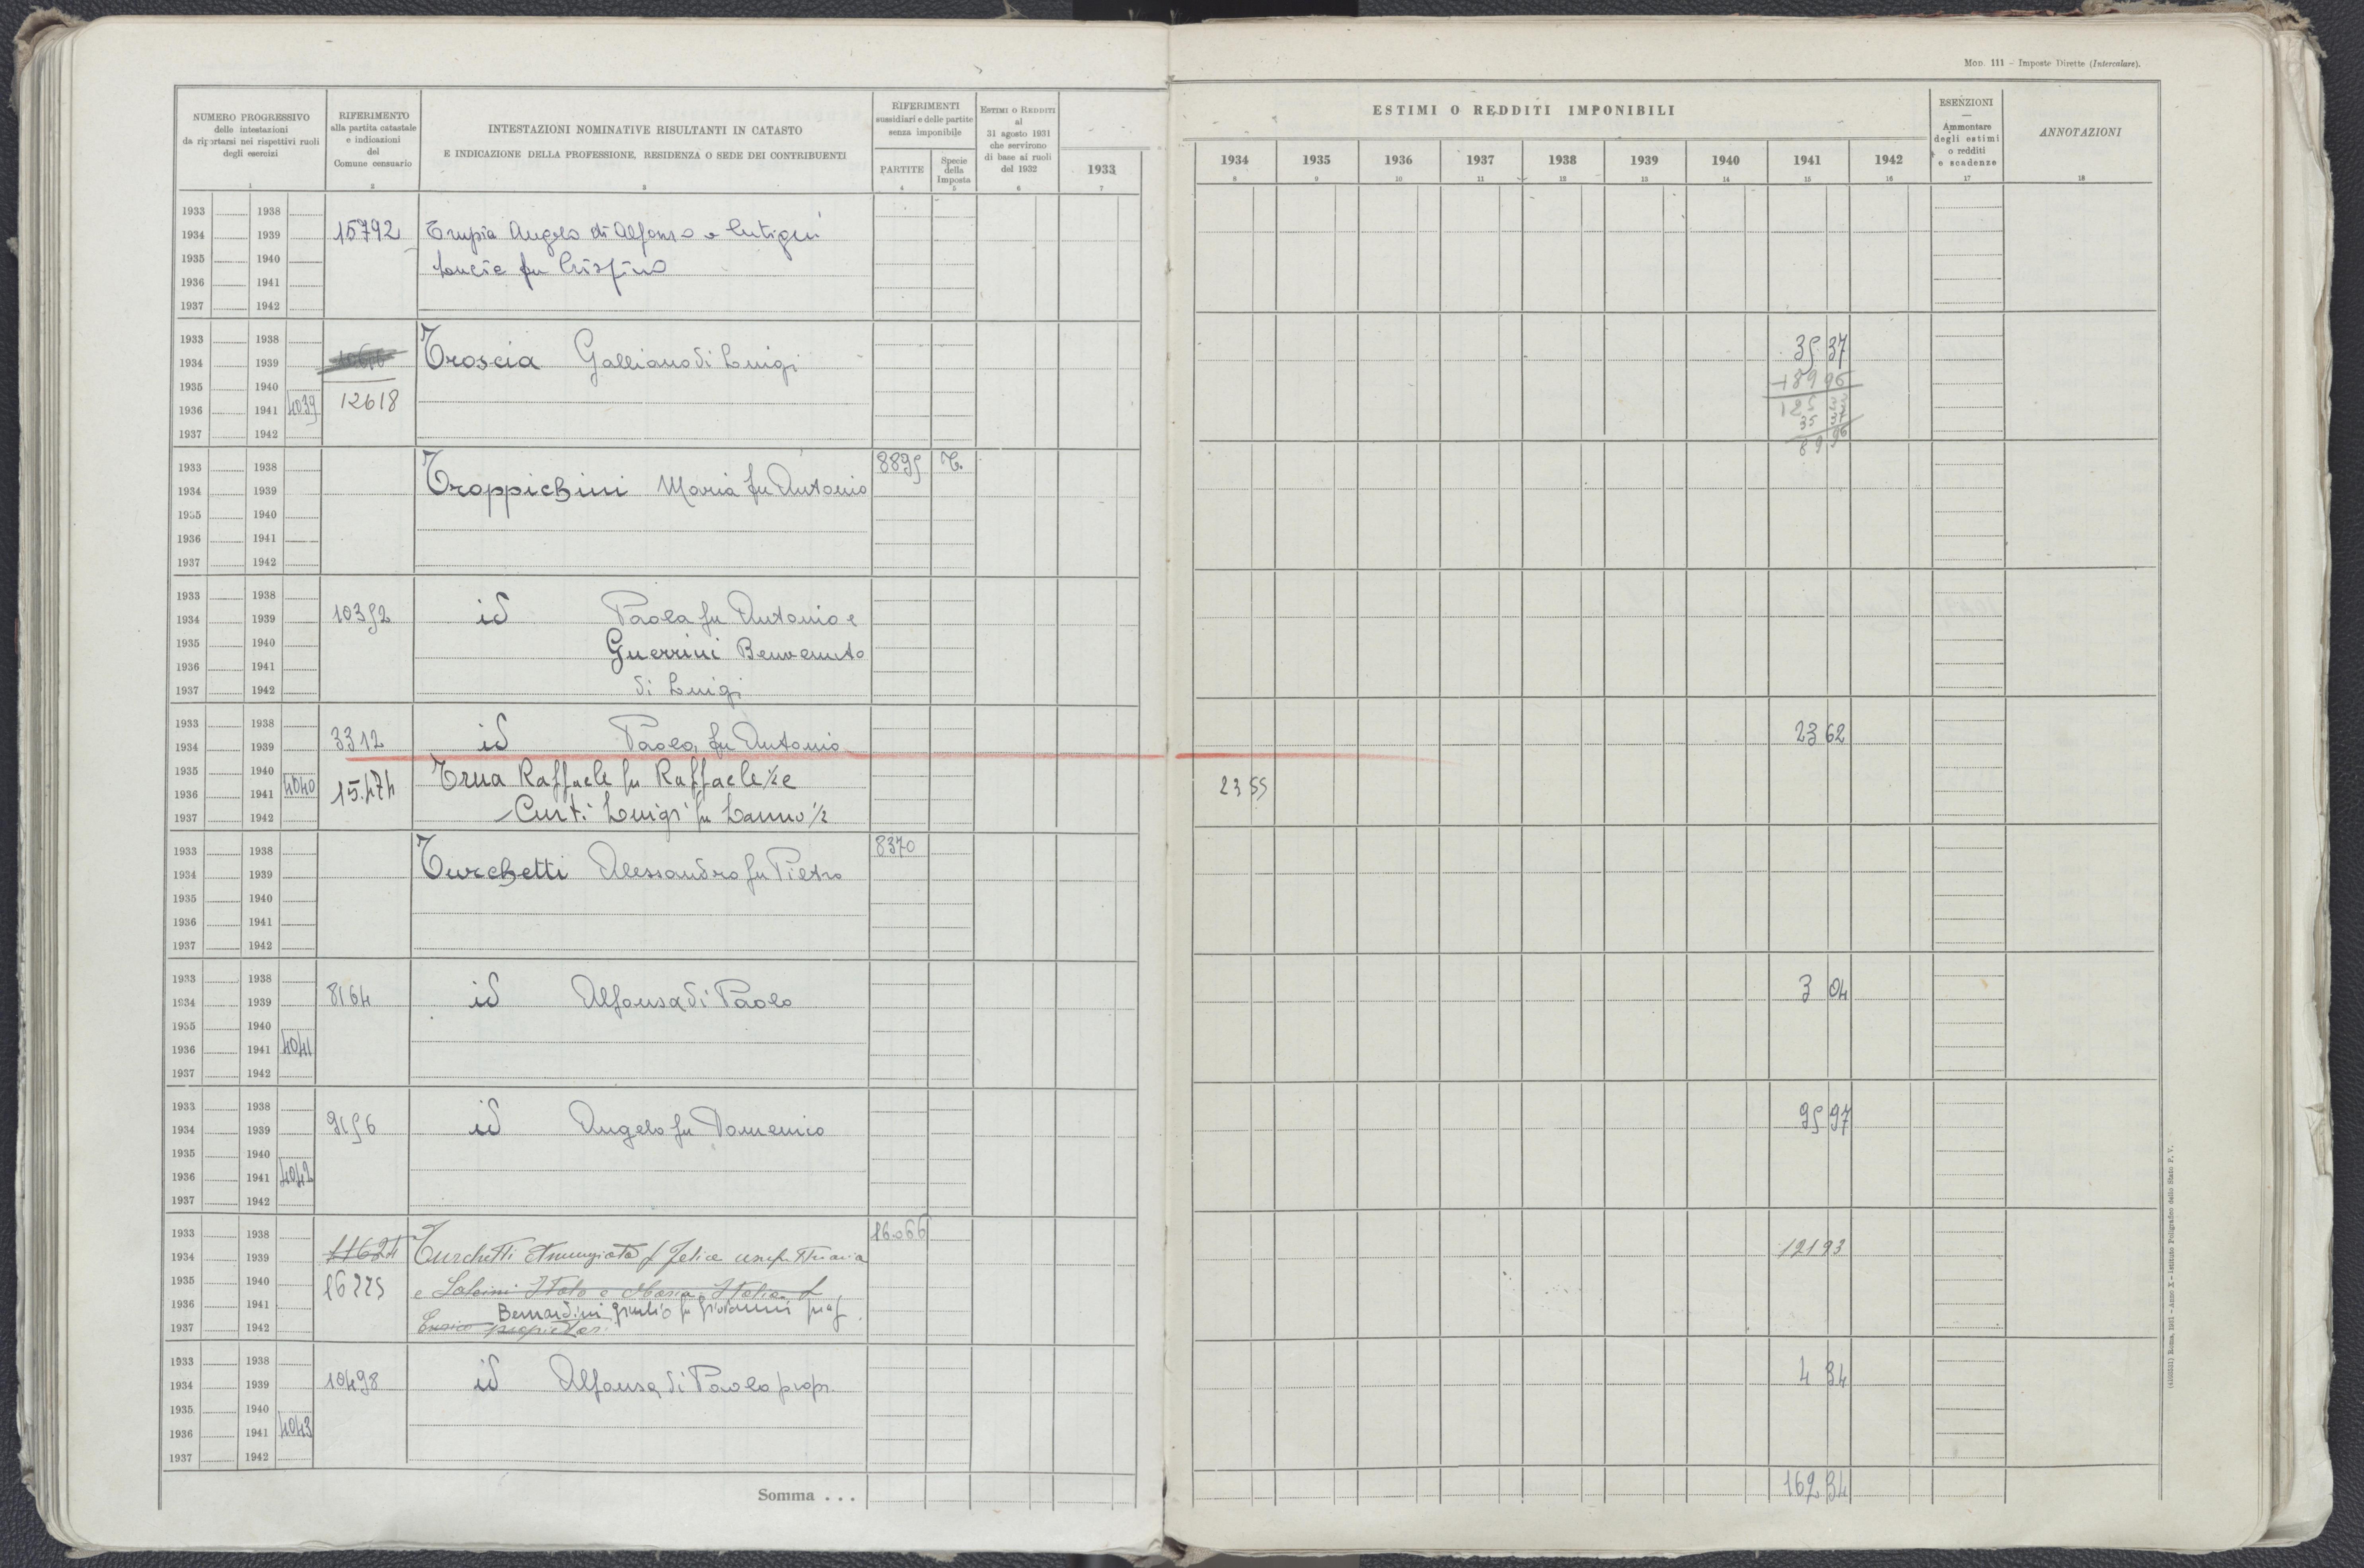 MOD. 111 - Imposte Dirette (Intercalare).
NUMERO PROGRESSIVO
delle intestazioni
da riportarsi nei rispettivi ruoli
degli esercizi
1
RIFERIMENTO
alla partita catastale
e indicazioni
del
Comune censuario
2
INTESTAZIONI NOMINATIVE RISULTANTI IN CATASTO
E INDICAZIONE DELLA PROFESSIONE, RESIDENZA O SEDE DEI CONTRIBUENTI
3
RIFERIMENTI
sussidiari e delle partite
senza imponibile
PARTITE
4
Specie
della
Imposta
5
ESTIMI O REDDITI
al
31 agosto 1931
che servirono
di base ai ruoli
del 1932
6
1933
7
ESTIMI O REDDITI IMPONIBILI
1934 1935 1936 1937 1938 1939 1940 1941 1942
8 9 10 11 12 13 14 15 16
ESENZIONI
Ammontare
degli estimi
o redditi
e scadenze
17
ANNOTAZIONI
18
1933 1938
1934 1939 15792 Trupia Angelo di Alfonso e
1935 1940 fu Crispino
1936 1941
1937 1942
1933 1938
1934 1939 Troscia Galliano di Luigi 35 37
1935 1940 +89 96
1936 1941 4039 12618 125
1937 1942 35 37
89 96
1933 1938 8895 T.
1934 1939 Troppichini Maria fu Antonio
1935 1940
1936 1941
1937 1942
1933 1938
1934 1939 10352 id Paola fu Antonio e
1935 1940 Guerrini Benvenuto
1936 1941
1937 1942 di Luigi
1933 1938
1934 1939 3312 id Paola fu Antonio 23 62
1935 1940 Trua Raffaele fu Raffaele 1/2 e
1936 1941 4040 15.474 23 55
1937 1942 Curti Luigi fu 1/2
1933 1938 8370
1934 1939 Turchetti Alessandro fu Pietro
1935 1940
1936 1941
1937 1942
1933 1938
1934 1939 8164 id Alfonsa di Paolo 3 04
1935 1940
1936 1941 4041
1937 1942
1933 1938
1934 1939 9156 id Angelo fu Domenico 95 97
1935 1940
1936 1941 4042
1937 1942
1933 1938 16066
1934 1939 11624 Turchetti Annunziata f Felice usufruttuaria 121 93
1935 1940 16225 e Italo e Maria Italia f
1936 1941 Bernardini Giulio fu Giovanni
1937 1942 Enrico proprietari
1933 1938
1934 1939 10498 id Alfonsa di Paolo propr. 4 34
1935 1940
1936 1941 4043
1937 1942
Somma . . . 162 34
Roma, 1931 - Anno X - Istituto Poligrafico dello Stato P. V.